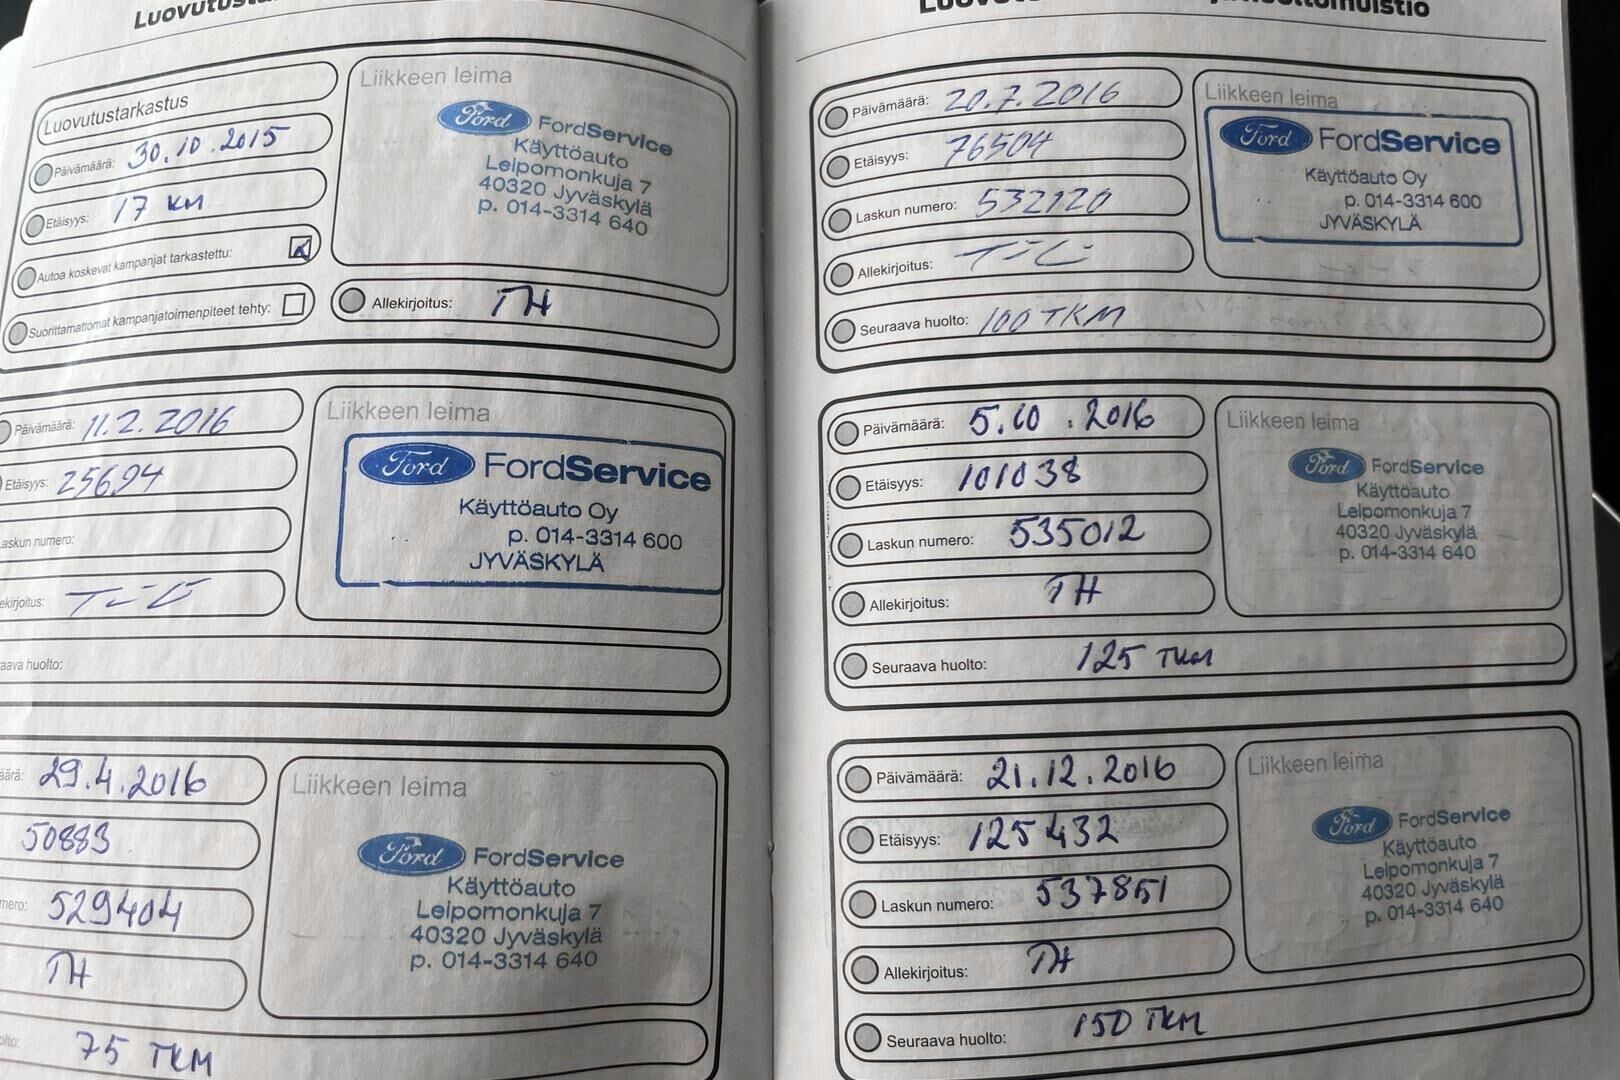 Luovutustarkastus
Päivämäärä: 30.10.2015
Etäisyys: 17 KM
Autoa koskevat kampanjat tarkastettu:
Suorittamattomat kampanjatoimenpiteet tehty:
Liikkeen leima
Ford FordService
Käyttöauto
Leipomonkuja 7
40320 Jyväskylä
p. 014-3314 640
Allekirjoitus: TH
Päivämäärä: 11.2.2016
Etäisyys: 25694
Laskun numero:
Liikkeen leima
Ford FordService
Käyttöauto Oy
p. 014-3314 600
JYVÄSKYLÄ
huolto:
29.4.2016
50883
529404
TH
Liikkeen leima
Ford FordService
Käyttöauto
Leipomonkuja 7
40320 Jyväskylä
p. 014-3314 640
75 TKM
Päivämäärä: 20.7.2016
Etäisyys: 76504
Laskun numero: 532120
Allekirjoitus:
Seuraava huolto: 100 TKM
Liikkeen leima
Ford FordService
Käyttöauto Oy
p. 014-3314 600
JYVÄSKYLÄ
Päivämäärä: 5.10.2016
Etäisyys: 101038
Laskun numero: 535012
Allekirjoitus: TH
Seuraava huolto: 125 TKM
Liikkeen leima
Ford FordService
Käyttöauto
Leipomonkuja 7
40320 Jyväskylä
p. 014-3314 640
Päivämäärä: 21.12.2016
Etäisyys: 125432
Laskun numero: 537851
Allekirjoitus: TH
Seuraava huolto: 150 TKM
Liikkeen leima
Ford FordService
Käyttöauto
Leipomonkuja 7
40320 Jyväskylä
p. 014-3314 640